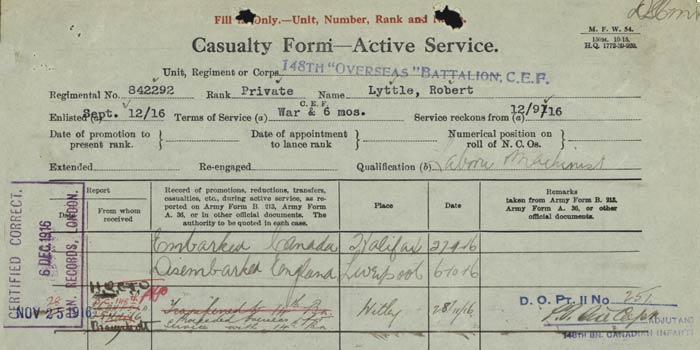 Fill Only.—Unit, Number, Rank and
M. F. W. 54.
H.Q. 1772-39-920.
Casualty Form—Active Service.
Unit, Regiment or Corps 148TH "OVERSEAS" BATTALION, C.E.F.
Regimental No. 842292 Rank Private Name Lyttle, Robert
C.E.F.
Enlisted (a) Sept. 12/16 Terms of Service (a) War & 6 mos. Service reckons from (a) 12/9/16
Date of promotion to present rank. } Date of appointment to lance rank } Numerical position on roll of N. C. Os. }
Extended Re-engaged Qualification (b) Machinist
Report
Date From whom received
Record of promotions, reductions, transfers, casualties, etc., during active service, as reported on Army Form B. 213, Army Form A. 36, or in other official documents. The authority to be quoted in each case.
Place
Date
Remarks
taken from Army Form B. 213, Army Form A. 36, or other official documents.
CERTIFIED CORRECT.
6 DEC. 1916
CAN. RECORDS, LONDON.
Embarked Canada Halifax 27 9 16
Disembarked England Liverpool 6 10 16
NOV 25 1916
Witley 28/11/16
D. O. Pt. II No 251
ADJUTANT
148TH BN. CANADIAN INFANT